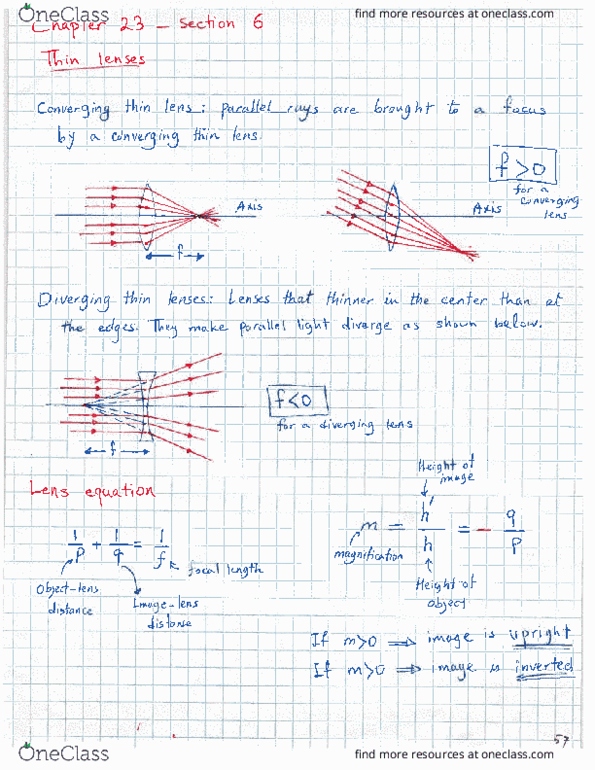 OneClass
find more resources at oneclass.com
Chapter 23 - section 6
Thin lenses
Converging thin lens: parallel rays are brought to a focus
by a converging thin lens.
f>0
for a
converging
lens
Axis
Axis
f
Diverging thin lenses: Lenses that thinner in the center than at
the edges. They make parallel light diverge as shown below.
f<0
for a diverging lens
f
Lens equation
1/p + 1/q = 1/f
focal length
Object-lens
distance
Image-lens
distanse
Height of
image
m = h'/h = - q/p
magnification
Height of
object
If m>0 ⟹ image is upright
If m>0 ⟹ image is inverted
57
OneClass
find more resources at oneclass.com